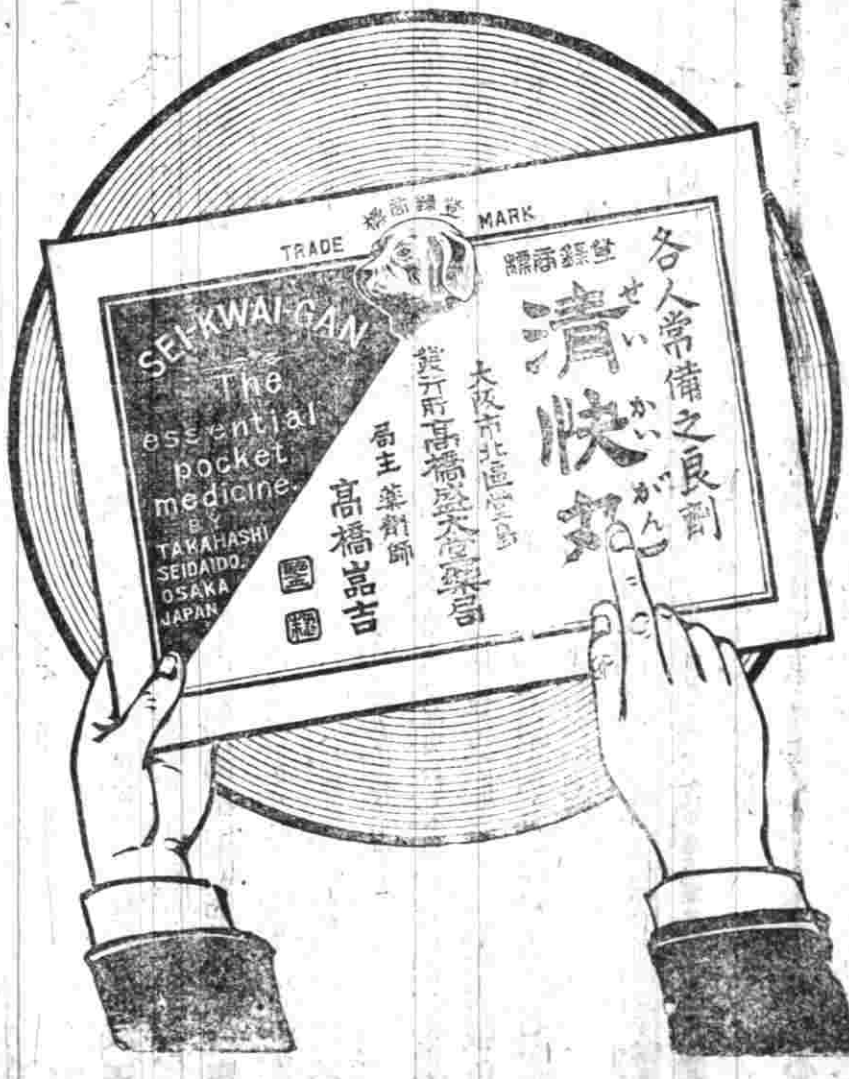 登録商標
TRADE MARK
各人常備之良剤
登録商標
清快丸
せいかいがん
大阪市北區堂島
發行所高橋盛大堂藥局
局主 薬剤師
高橋嵓吉
SEI-KWAI-GAN
The
essential
pocket
medicine.
BY
TAKAHASHI
SEIDAIDO.
OSAKA
JAPAN